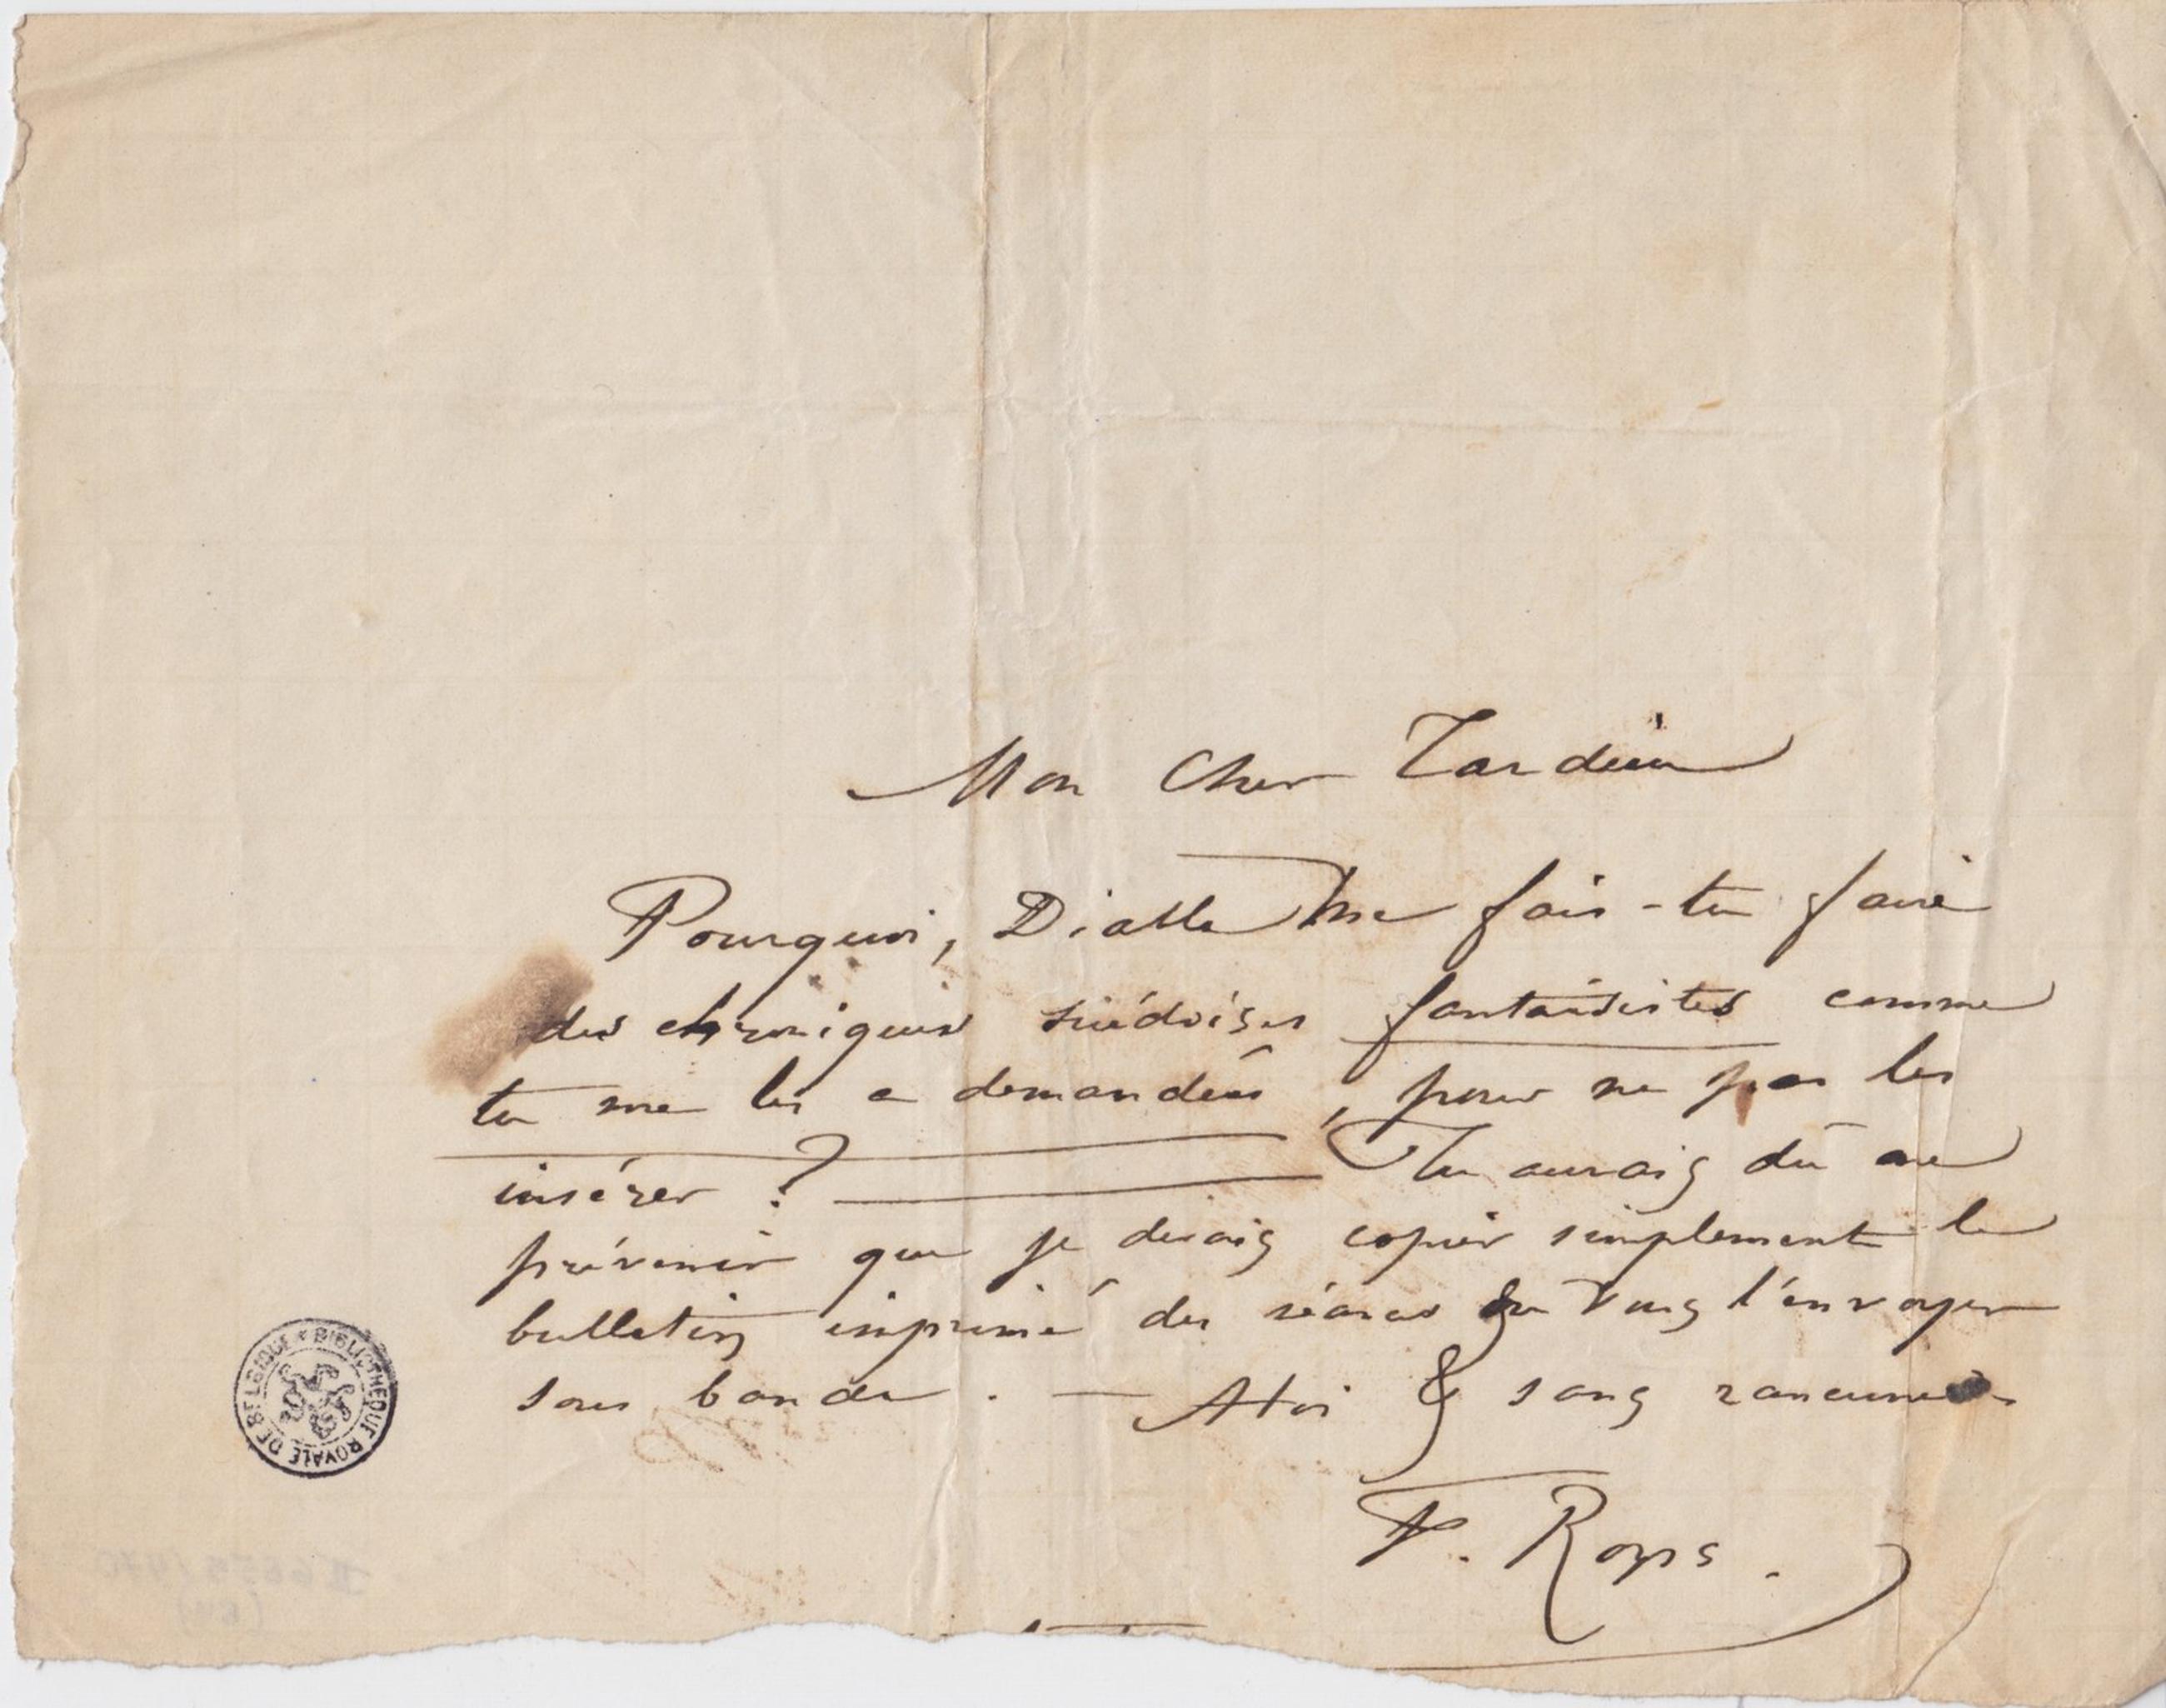 Mon Cher Tardieu
Pourquoi, Diable me fais-tu faire
des chroniques suédoises fantaisistes comme
tu me les a demandées, pour ne pas les
insérer ? — Tu aurais dû me
prévenir que je devais copier simplement le
bulletin imprimé des séances & l'envoyer
sous bande. — A toi & sans rancune
F. Rops.
BIBLIOTHEQUE ROYALE DE BELGIQUE